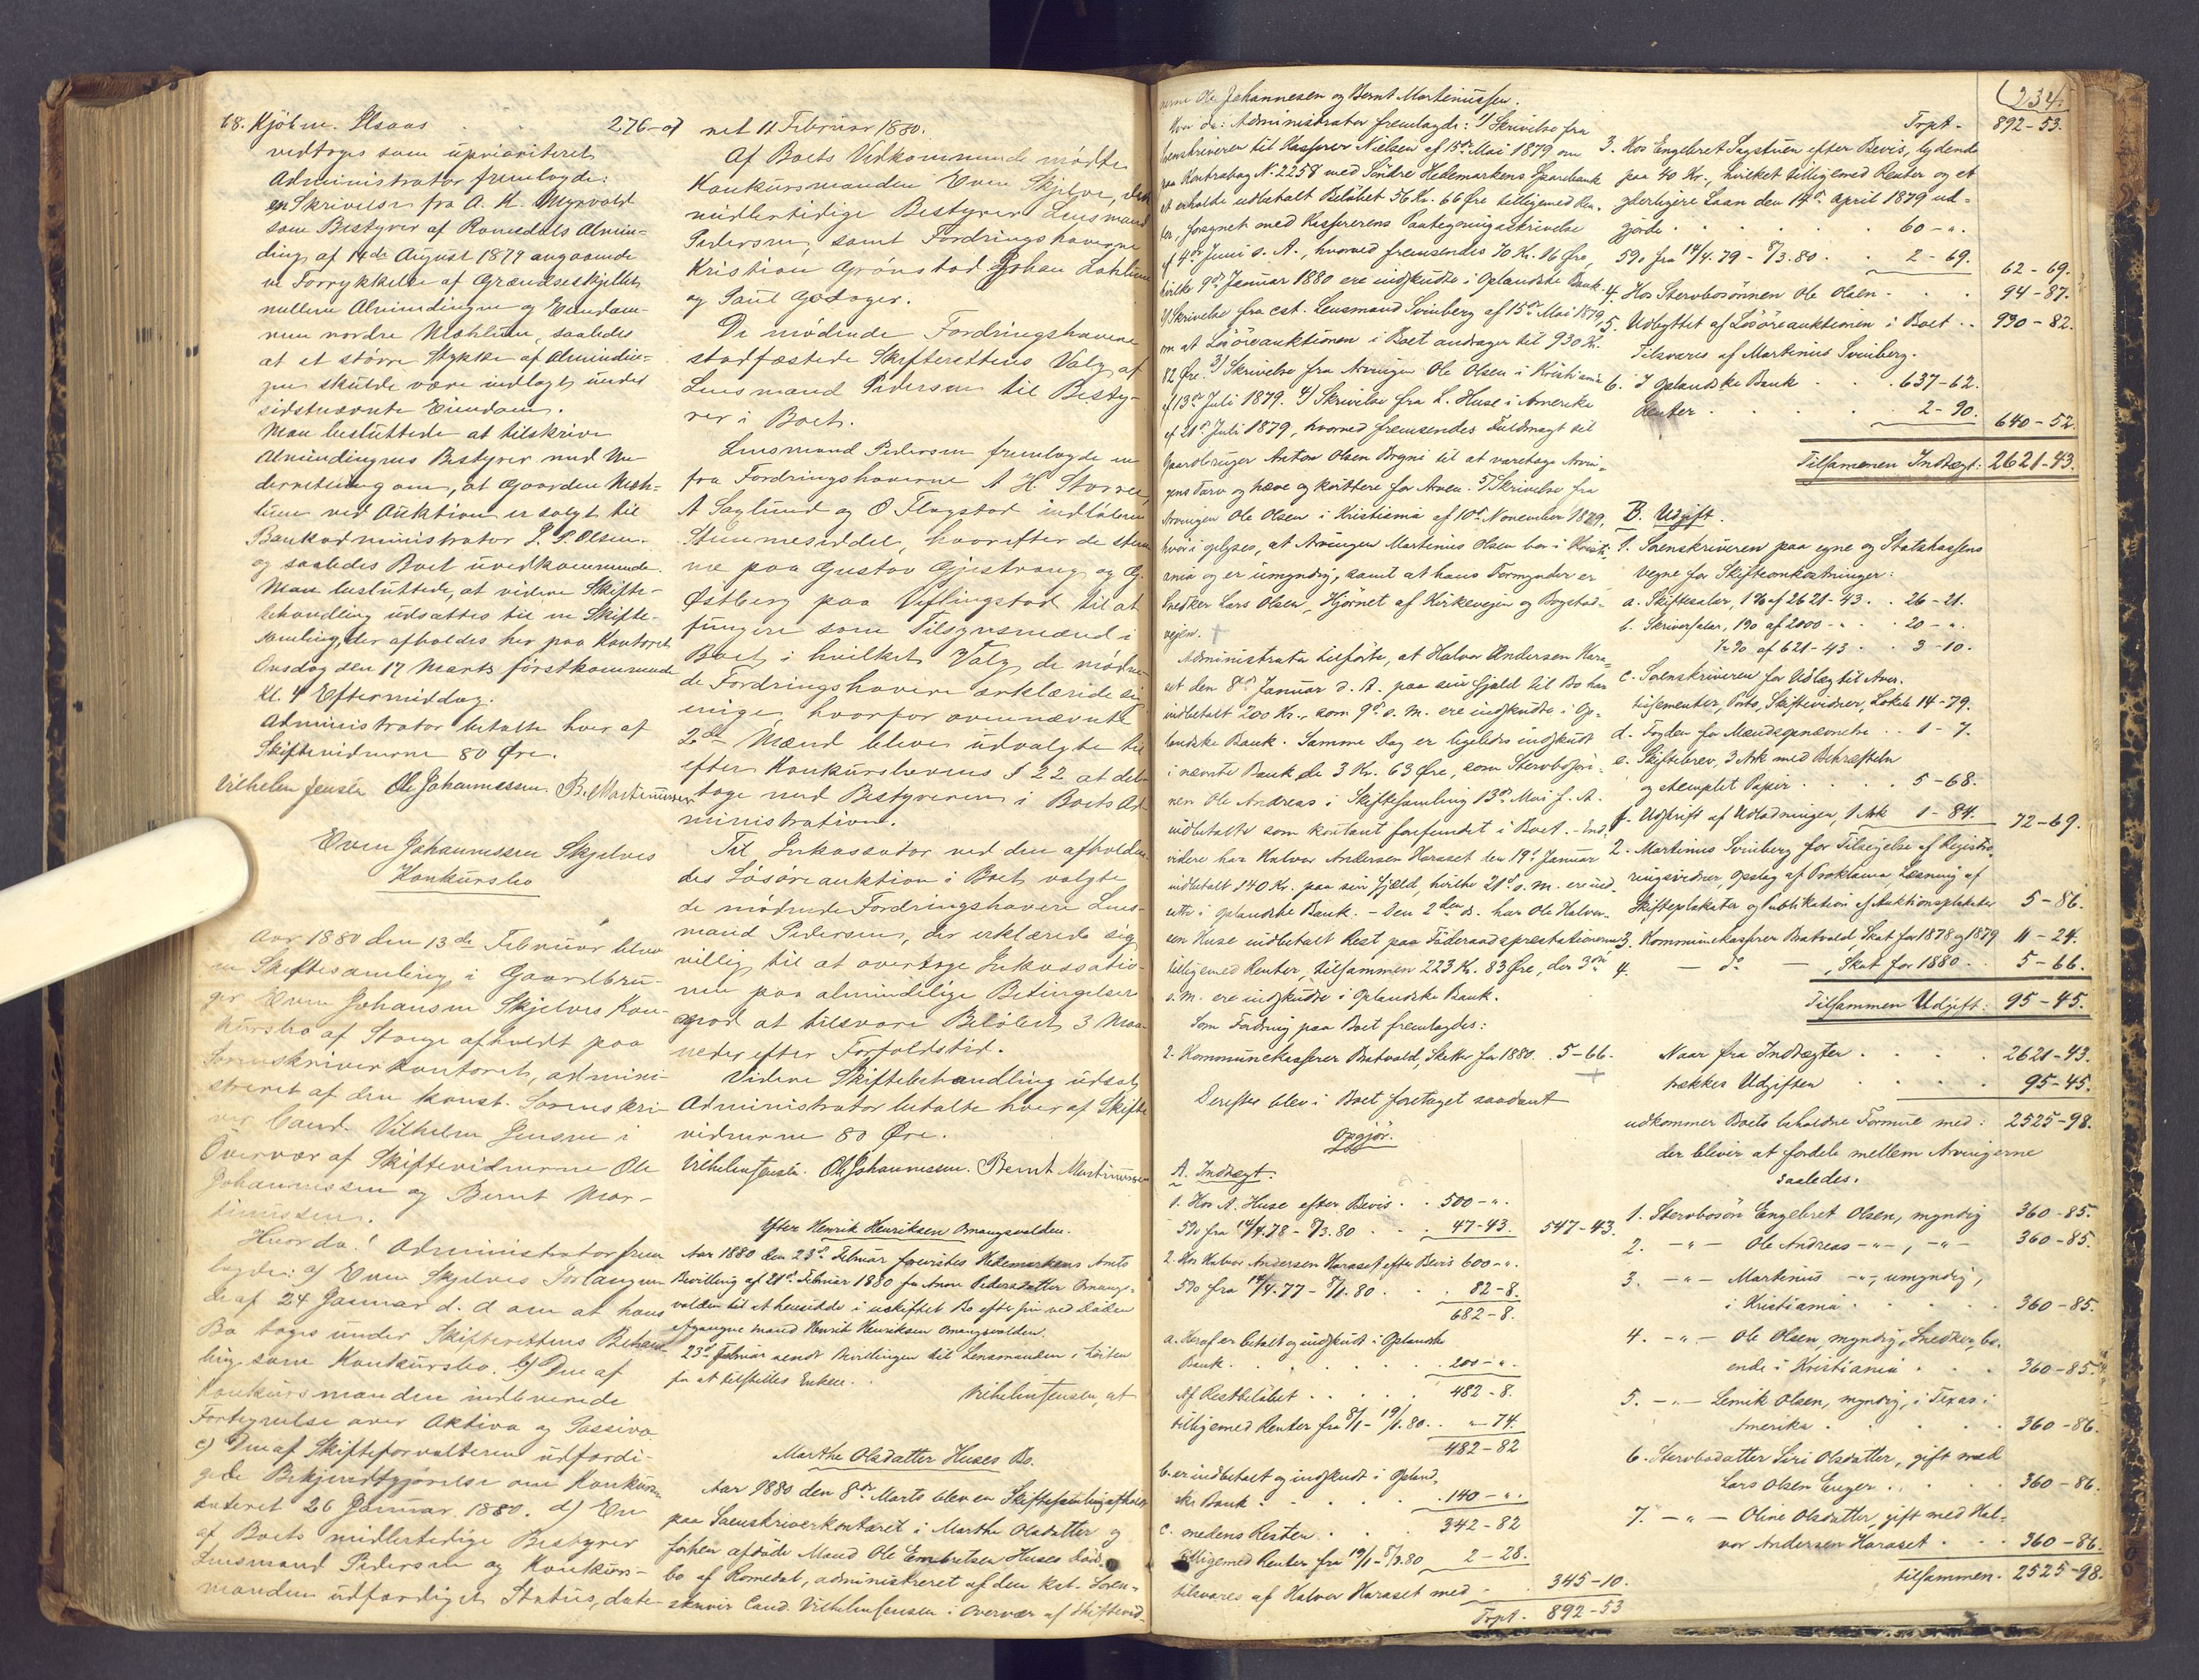 68. Kjöbm. Ilsaas . . 276-07
vedtoges som uprioriteret.
Administrator fremlagde:
en Skrivelse fra A. K. Myrvold
som Bestyrer af Romedals Almin-
ding af 14de August 1879 angaaende
en Forrykkelse af Grændseskjellet
mellem Almindingen og Eiendom-
men nordre Mæhlum, saaledes
at et större Stykke af Almindin-
gen skulde være indlagt under
sidstnævnte Eiendom.
Man besluttede at tilskrive
Almindingens Bestyrer med Un-
derretning om, at Gaarden Mæh-
lum ved Auktion er solgt til
Bankadministrator P. S. Olsen.
og saaledes Boet uvedkommende.
Man besluttede, at videre Skifte-
behandling udsattes til en Skifte-
samling, der afholdes her paa Kontoret
Onsdag den 17 Marts förstkommende
Kl. 4 Eftermiddag.
Administrator betalte hver af
Skiftevidnerne 80 Øre.
Vilhelm Jensen Ole Johannessen. B. Martinussen
Even Johannessen Skjelves
Konkursbo
Aar 1880 den 13de Februar blev
en Skiftesamling i Gaardbru-
ger Even Johansen Skjelves Kon-
kursbo af Stange afholdt paa
Sorenskriverkontoret, admini-
streret af den konst. Sorenskri-
ver Cand. Vilhelm Jensen i
Overvær af Skiftevidnerne Ole
Johannessen og Bernt Mar-
tinussen.
Hvorda! Administrator frem
lagde: a) Even Skjelves Forlangen
de af 24 Januar d. A om at hans
Bo toges under Skifterettens Behand-
ling som Konkursbo. b) Den af
Konkursmanden indleverede
Fortegnelse over Aktiva og Passiva
c) Den af Skifteforvalteren udfærdi-
gede Bekjendtgjörelse om Konkursen
dateret 26 Januar 1880. d) En
af Boets midlertidige Bestyrer
Lensmand Pedersen og Konkurs-
manden udfærdiget Status, date-
ret 11 Februar 1880.
Af Boets Vedkommende mödte
Konkursmanden Even Skjelve, den
midlertidige Bestyrer Lensmand
Pedersen, samt Fordringshaverne
Kristian Grönstad Johan Lahlum
og Paul Godager.
De mödende Fordringshavere
stadfæstede Skifterettens Valg af
Lensmand Pedersen til Besty-
rer i Boet.
Lensmand Pedersen fremlagde en
fra Fordringshaverne A H Storree,
A Saglund og O Flagstad indlöben
Stemmeseddel, hvorefter de stem
me paa Gustav Gjestvang og G.
Østberg paa Viflingstad til at
fungere som Tilsynsmænd i
Boet, i hvilket Valg de möden
de Fordringshavere erklærede sig
enige, hvorfor ovennævnte
2de Mænd bleve udvalgte til
efter Konkurslovens § 22 at del
tage med Bestyreren i Boets Ad
ministration.
Til Inkassator ved den afholden
des Lösöreauktion i Boet valgte
de mödende Fordringshavere Lens-
mand Pedersen, der erklærede sig
villig til at overtage Inkassatio-
nen paa almindelige Betingelser
mod at tilsvare Belöbet 3 Maa-
neder efter Forfaldstid.
Videre Skiftebehandling udsat
Administrator betalte hver af Skifte
vidnerne 80 Øre.
Vilhelm Jensen. Ole Johannessen. Bernt Martinussen
Efter Henrik Henriksen Omangsvolden.
Aar 1880 den 23de Februar forevistes Hedemarkens Amts
Bevilling af 21de Februar 1880 for Anne Pedersdatter Omangs-
volden til at hensidde i uskiftet Bo efter sin ved Döden
afgangne Mand Henrik Henriksen Omangsvolden.
23de Februar sendt Bevillingen til Lensmanden i Löiten
for at tilstilles Enken.
Vilhelm Jensen, cst
Marthe Olsdatter Huses Bo.
Aar 1880 den 8de Marts blev en Skiftesamling afholdt
paa Sorenskriverkontoret i Marthe Olsdatter og
forhen afdöde Mand Ole Embretsen Huses Döds-
bo af Romedal, administreret af den kst. Soren-
skriver Cand. Vilhelm Jensen i Overvær af Skiftevid-
nerne Ole Johannesen og Bernt Martinussen.
Hvor da: Administrator fremlagde: 1) Skrivelse fra
Sorenskriveren til Kasserer Nielsen af 15de Mai 1879 om
paa Kontrabog No 2258 med Söndre Hedemarkens Sparebank
at erholde udbetalt Belöbet 56 Kr. 66 Øre tilligemed Ren-
ter, forsynet med Kassererens Paategningsskrivelse
af 4de Juni s. A., hvorved fremsendes 70 Kr. 16 Øre,
hvilke 9de Januar 1880 ere indskudte i Oplandske Bank.
2) Skrivelse fra cst. Lensmand Svinberg af 15de Mai 1879
om at Lösöreauktionen i Boet andrager til 930 Kr.
82 Øre. 3) Skrivelse fra Arvingen Ole Olsen i Kristiania
af 13de Juli 1879. 4) Skrivelse fra L. Huse i Amerika
af 21de Juli 1879, hvorved fremsendes Fuldmagt til
Gaardbruger Anton Olsen Brygni til at varetage Arvin-
gens Tarv og hæve og kvittere for Arven. 5) Skrivelse fra
Arvingen Ole Olsen i Kristiania af 10de November 1879,
hvori oplyses, at Arvingen Martinius Olsen bor i Kristi-
ania og er umyndig, samt at hans Formynder er
Snedker Lars Olsen, Hjörnet af Kirkevejen og Bogstad-
vejen.
Administrator tilförte, at Halvor Andersen Hara-
set den 8de Januar d. A. paa sin Gjæld til Bo har
indbetalt 200 Kr., som 9de s. M. ere indskudte i Op-
landske Bank. Samme Dag er ligeledes indskudt
i nævnte Bank de 3 Kr. 63 Øre, som Stervbosön-
nen Ole Andreas i Skiftesamling 13de Mai f. A.
indbetalte som kontant forefundet i Boet. - End-
videre har Halvor Andersen Haraset den 19de Januar
indbetalt 140 Kr. paa sin Gjæld, hvilke 21de s. M. ere ind-
satte i Oplandske Bank. - Den 2den ds. har Ole Halvor-
sen Huse indbetalt Rest paa Föderaadspræstationerne
tilligemed Renter, tilsammen 223 Kr. 83 Øre, der 3die
s. M. ere indskudte i Oplandske Bank.
Som Fordring paa Boet fremlagdes:
2. Kommunekasserer Bratvold, Skatter for 1880. . 5-66.
Derefter blev i Boet foretaget saadant
Opgjör.
A. Indtægt.
1. Hos A. Huse efter Bevis . . 500-".
5% fra 14/4.78 - 8/3.80 . . 47-43. 547-43.
2. Hos Halvor Andersen Haraset efter Bevis 600-".
5% fra 14/4.77 - 8/1.80 . . 82-8.
682-8.
a. Heraf er betalt og indskudt i Oplandske
Bank . . . . 200-".
Af Restbelöbet . . . . 482-8.
tilligemed Renter fra 8/1 - 19/1.80 . . "-74.
482-82
b. er indbetalt og indskudt i Opland-
ske Bank . . . . 140-".
342-82
c. medens Resten . . .
tilligemed Renter fra 19/1 - 8/3.80 2-28.
tilsvares af Halvor Haraset med . . 345-10.
Trpt. 892-53
(234.
Trpt. 892-53.
3. Hos Engebret Sagstuen efter Bevis, lydende
paa 40 Kr., hvilket tilligemed Renter og et
yderligere Laan den 14de April 1879 ud-
gjorde . . . . 60-".
5% fra 14/4.79 - 8/3.80 . . 2-69. 62-69.
4. Hos Stervbosönnen Ole Olsen . . . 94-87.
5. Udbyttet af Lösöreauktionen i Boet . . 930-82.
Tilsvares af Martinius Svinberg.
6. I Oplandske Bank . . . 637-62.
Renter . . . . 2-90. 640-52.
Tilsammen Indtægt: 2621-43.
B. Udgift.
1. Sorenskriveren paa egne og Statskassens
Vegne for Skifteomkostninger:
a. Skiftesalær, 1% af 2621-43 . . 26-21.
b. Skriversalær, 1% af 2000-" . . 20-".
½% af 621-43 . . 3-10.
c. Sorenskriveren for Udlæg til Aver-
tissementer, Porto, Skiftevidner, Lokale 14-79.
d. Fogden for Mændsopnævnelse . . 1-7.
e. Skiftebrev, 3 Ark med Bekræftelse
og stemplet Papir . . . 5-68.
f. Udskrift af Udlodningen, 1 Ark 1-84. 72-69.
2. Martinius Svinberg for Tilsigelse af Registre-
ringsvidner, Opslag af Proklama, Læsning af
Skifteplakater og Publikation af Auktionsplakater 5-86.
3. Kommunekasserer Bratvold, Skat for 1878 og 1879 11-24.
4. - do - , Skat for 1880 . . 5-66.
Tilsammen Udgift: 95-45.
Naar fra Indtægter . . . . 2621-43.
trækkes Udgiften . . . . 95-45.
udkommer Boets beholdne Formue med: 2525-98.
der bliver at fordele mellem Arvingerne
saaledes.
1. Stervbosön Engebret Olsen, myndig 360-85.
2. -"- Ole Andreas -"-, -"- 360-85.
3. -"- Martinius -"-, umyndig,
i Kristiania . . . . 360-85.
4. -"- Ole Olsen, myndig, Snedker, bo-
ende i Kristiania . . . 360-85.
5. -"- Lemik Olsen, myndig, i Texas i
Amerika . . . . 360-86.
6. Stervbodatter Siri Olsdatter, gift med
Lars Olsen Enger . . . . 360-86.
7. -"- Oline Olsdatter, gift med Hal-
vor Andersen Haraset . . . 360-86.
tilsammen. 2525-98.